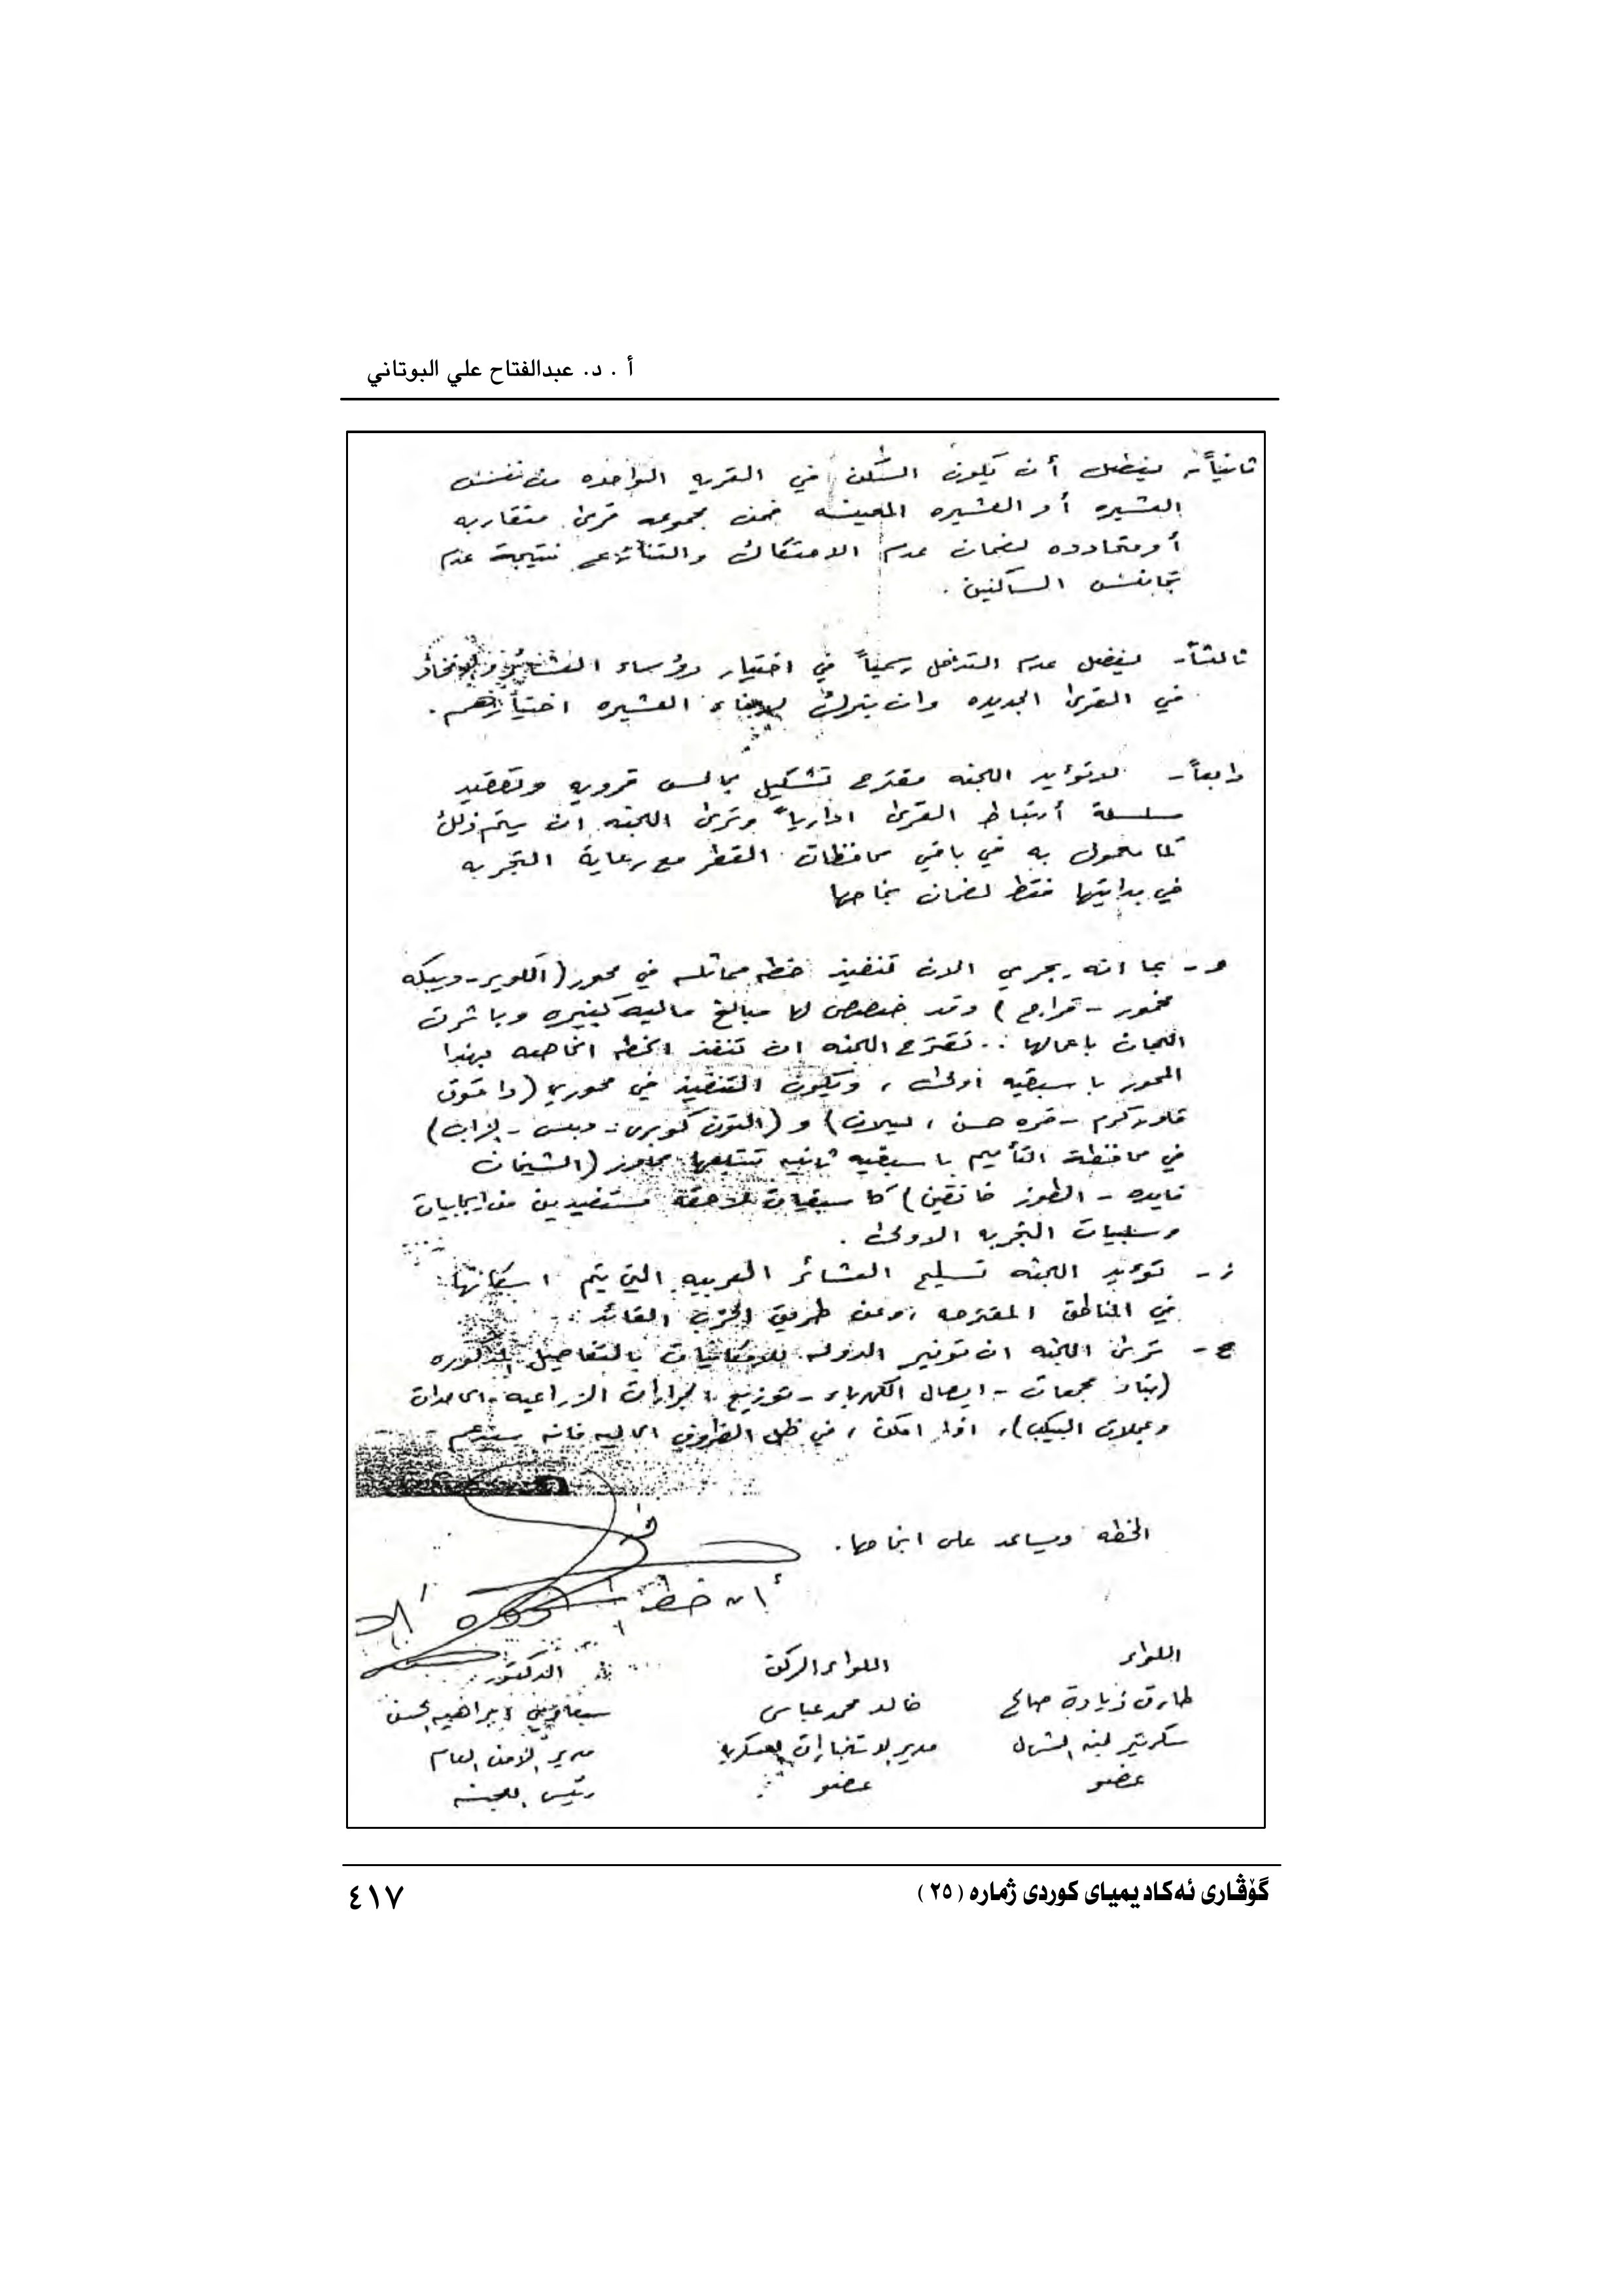 أ . د. عبدالفتاح علي البوتاني
ثانياً- يفضل أن يكون السكن في القريه الواحده من نفس
العشيره أو العشيره المعينه ضمن مجموعه قرى متقاربه
أو متحادده لضمان عدم الاحتكاك والتنازع نتيجة عدم
تجانس الساكنين .
ثالثاً- يفضل عدم التدخل رسمياً في اختيار رؤساء العشائر
في القرى الجديده وان يترك لابناء العشيره اختيارهم .
رابعاً- لاتؤيد اللجنه مقترح تشكيل مجالس قرويه وتعقيد
سلسلة أرتباط القرى ادارياً وترى اللجنه ان يتم ذلك
كما معمول به في باقي محافظات القطر مع رعاية التجربه
في بدايتها فقط لضمان نجاحها
و- بما انه يجري الان تنفيذ خطه مماثله في محور (الكوير - ديبكه
مخمور - قراج ) وقد خصص لها مبالغ ماليه كبيره وباشرت
اللجان باعمالها .. تقترح اللجنه ان تنفذ الخطه الخاصه بهذا
المحور باسبقيه اولى ، ويكون التنفيذ في محوري (داقوق
قادر كرم - قره حسن ، ليلان) و (التون كوبري - دبس - الزاب)
في محافظة التأميم باسبقيه ثانيه تتبعها محاور (الشيخان
فايده - الطوز خانقين) كاسبقيات لاحقة مستفيدين من ايجابيات
وسلبيات التجربه الاولى .
ز- تؤيد اللجنه تسليح العشائر العربيه التي يتم اسكانها
في المناطق المقترحه وعن طريق الحزب القائد .
ح- ترى اللجنه ان توفير الدوله للامكانيات بالتفاصيل المذكوره
(بناء مجمعات - ايصال الكهرباء - توزيع الجرارات الزراعيه - الحاصدات
وعجلات البيكب) ، اذا امكن ، في ظل الظروف الحاليه فانه سيدعم
الخطه ويساعد على انجاحها .
ان خطة
اللواء
طارق زيادة صالح
سكرتير لجنه الشمال
عضو
اللواء الركن
خالد محمد عباس
مدير الاستخبارات العسكريه
عضو
الدكتور
سبعاوي ابراهيم الحسن
مدير الامن العام
رئيس اللجنه
گۆڤاری ئەکادیمیای کوردی ژمارە (٢٥)
٤١٧